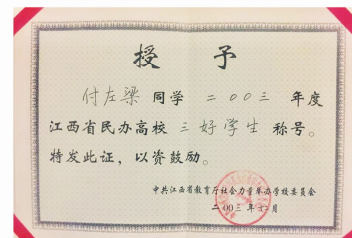 授 予
付左梁 同学 二00三 年度
江西省民办高校 三好学生 称号。
特发此证，以资鼓励。
中共江西省教育厅社会力量举办学校委员会
二00三 年十二月